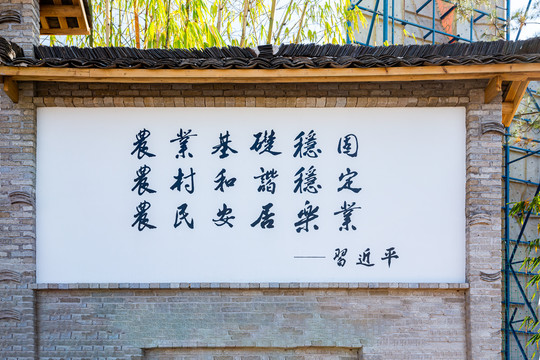 農業基礎穩固
農村和諧穩定
農民安居樂業
——習近平